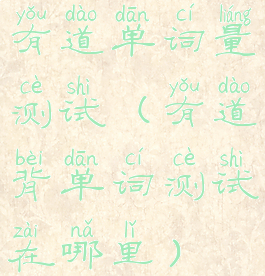 yǒu dào dān cí liáng
有道单词量
cè shì yǒu dào
测试（有道
bèi dān cí cè shì
背单词测试
zài nǎ lǐ
在哪里）